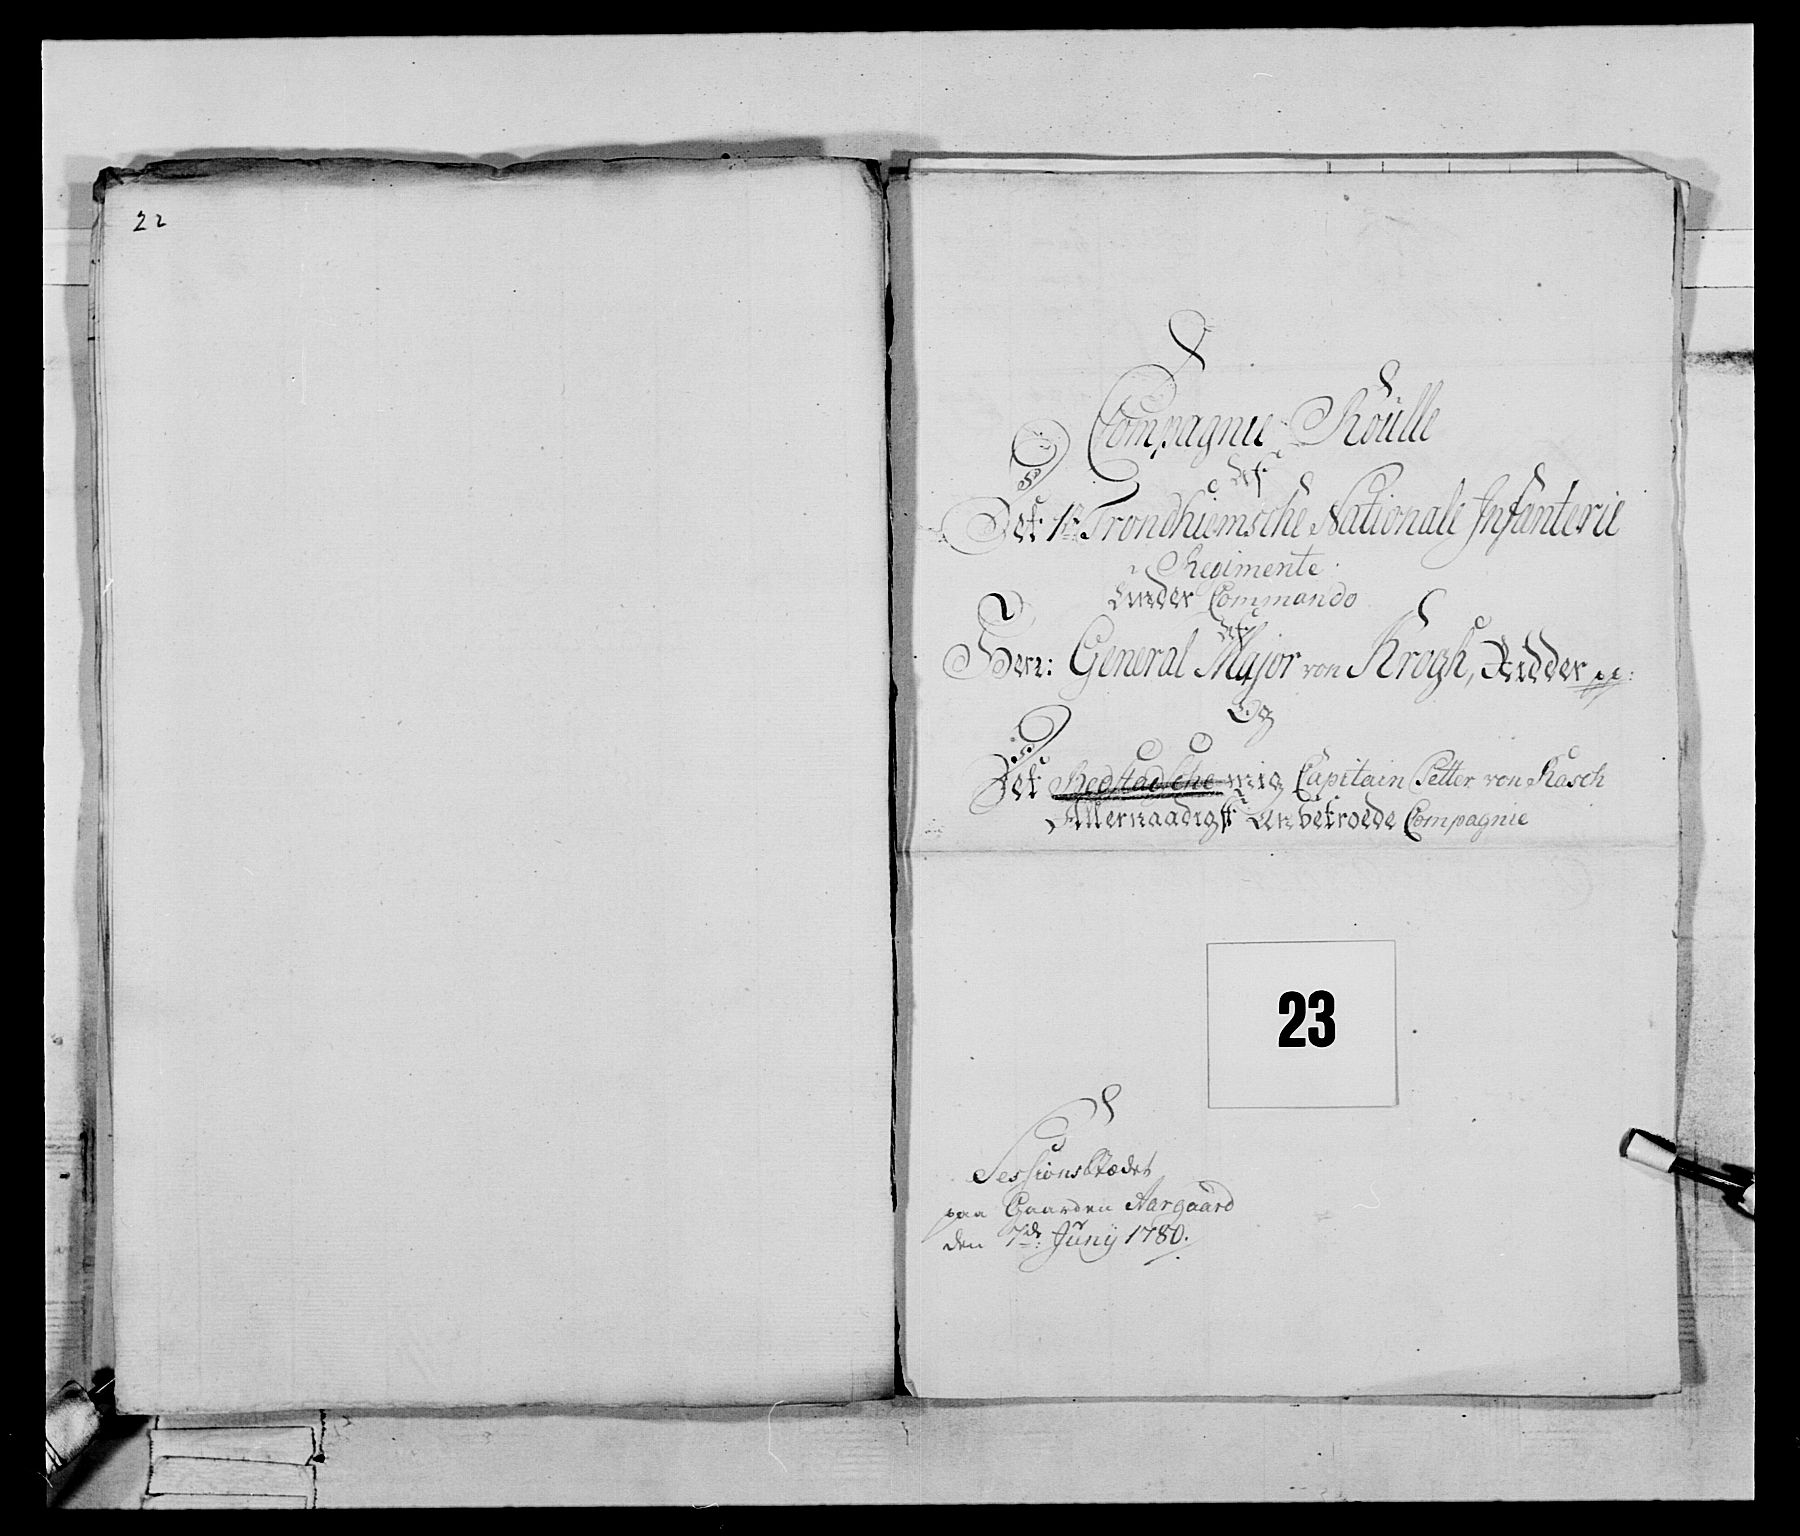 22
Compagnie Roülle
Af
Det 1te Trondhiemsche Nationale Infanterie
Regimente
Under Commando
Af
Herr: General Major von Krogh, Ridder pp:
Og
Det Hedstadsche mig Capitain Petter von Kasch
Allernaadigst Anbetroede Compagnie
23
Sessions Stædet
paa Gaarden Aargaard
den 7de: Junÿ 1780.